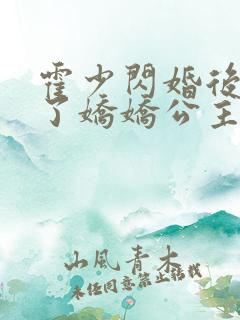 霍少閃婚後
了嬌嬌公主
山風青木
未經同意禁止轉載